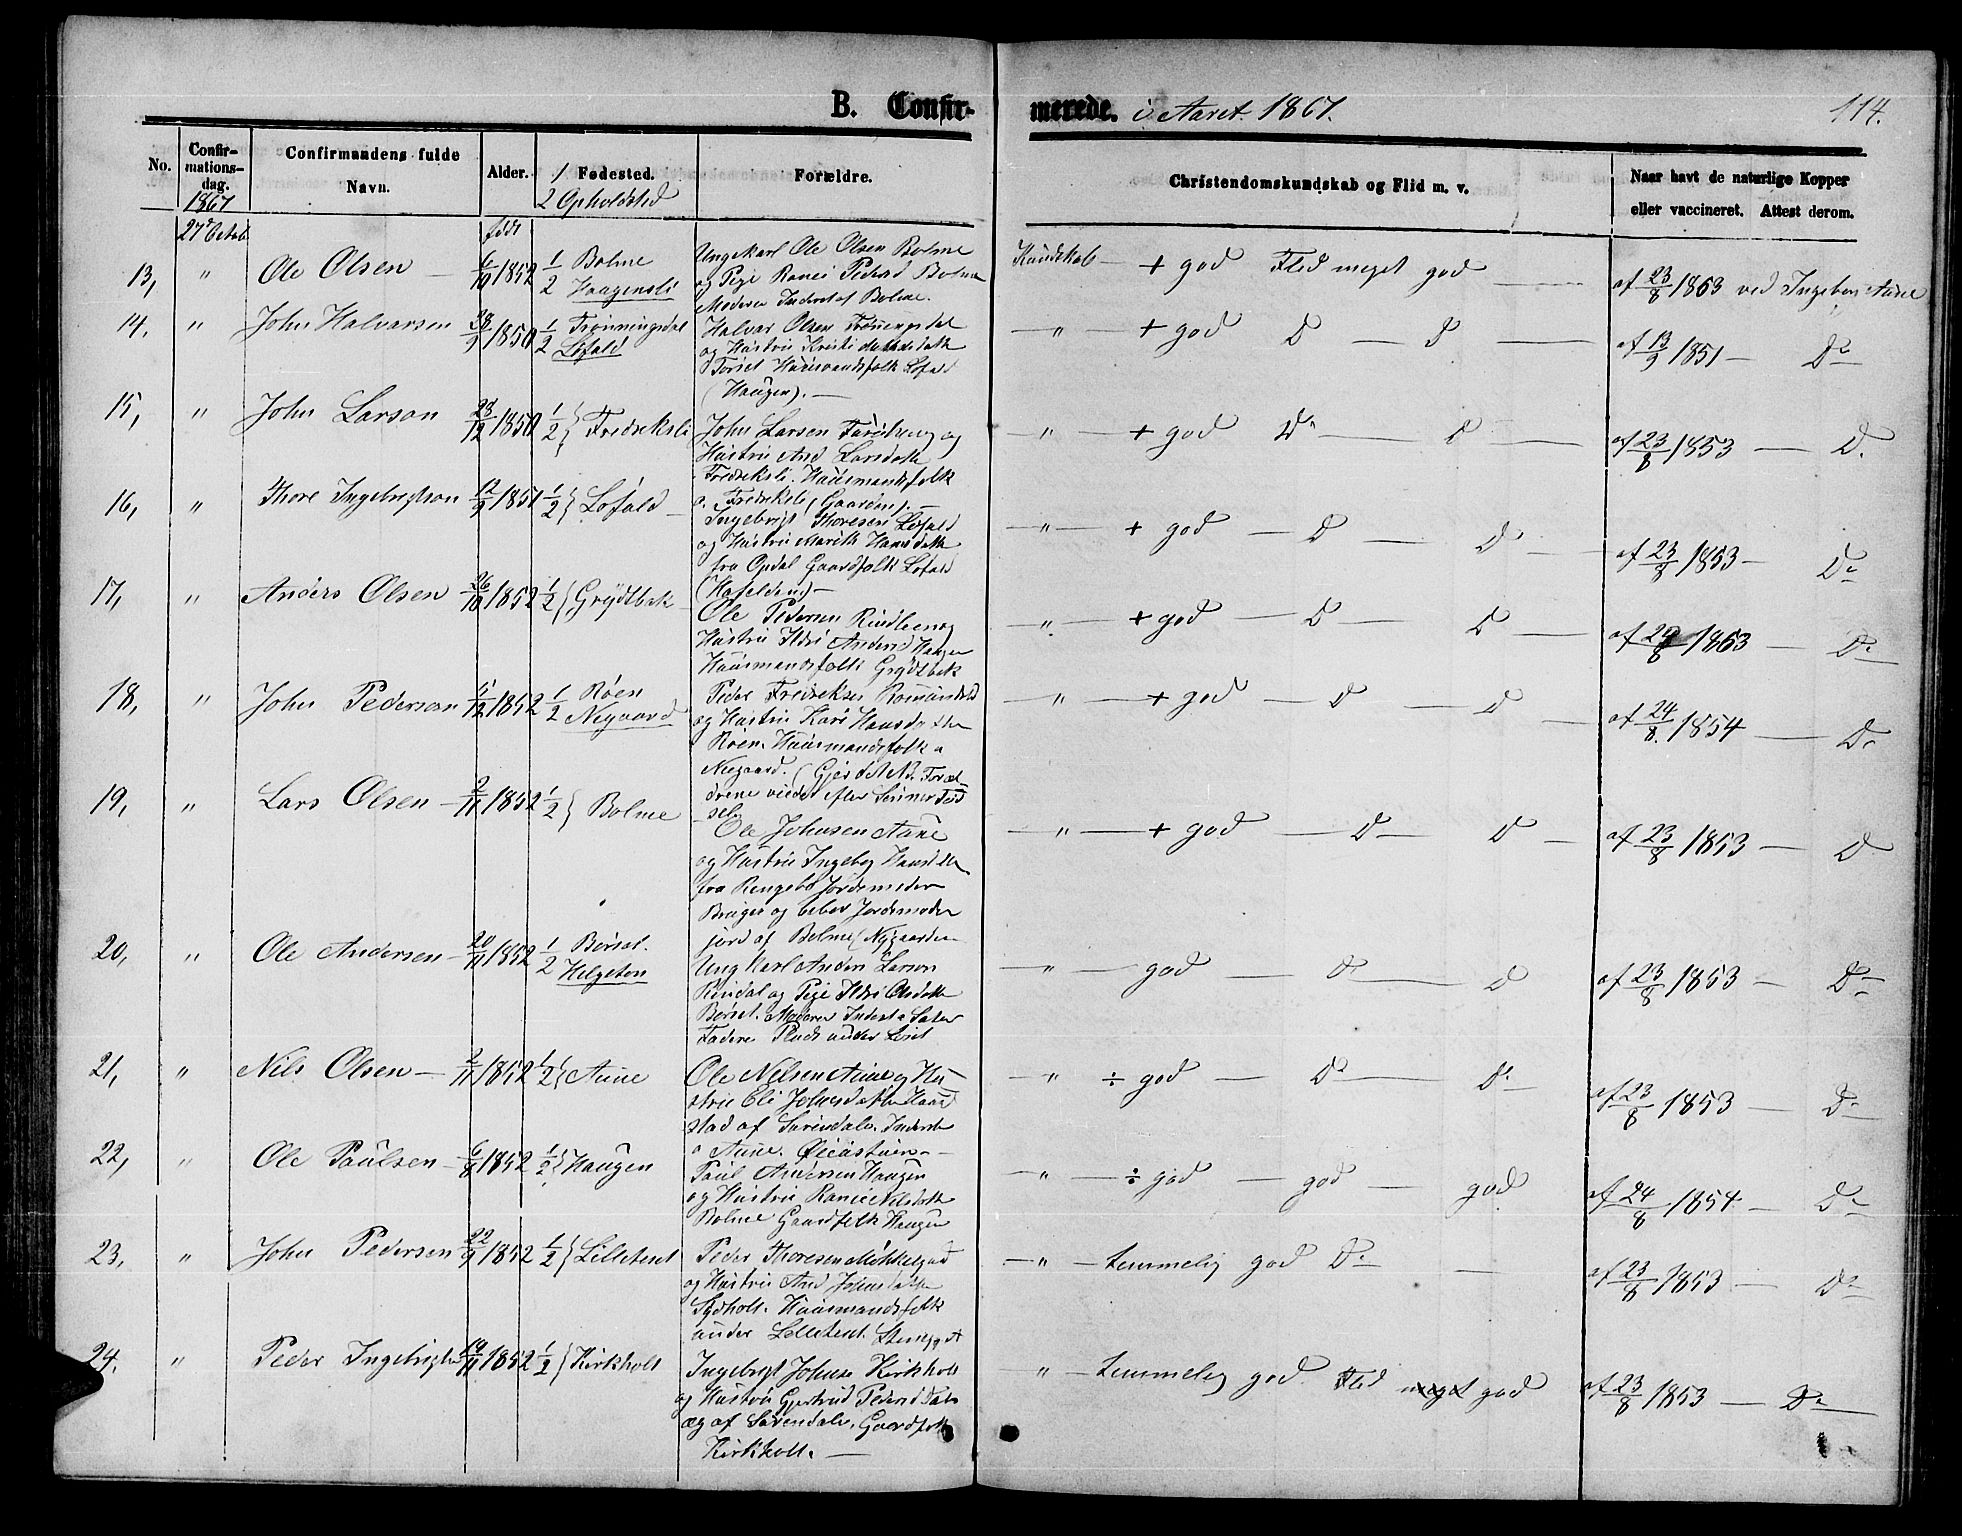 B. Confir-
merede. i Aaret 1867.
114.
No.
Confir-
mations-
dag.
1867
Confirmandens fulde
Navn.
Alder.
1 Fødested.
2 Opholdsted
Forældre.
Christendomskundskab og Flid m. v.
Naar havt de naturlige Kopper
eller vaccineret. Attest derom.
27de Octob
født
13, " Ole Olsen — 6/10 1852 1/2 Bolme
Haagensli
Ungekarl Ole Olsen Bolme
og Pige Ranei Pedersd Bolme
Moderen Inderst af Bolme.
Kundskab — + god Flid meget god —
af 23/8 1853 ved Ingebor Aune
14. " John Halvarsen 28/9 1850 1/2 Trønningsdal
Løfald
Halvar Olsen Trønningsdal
og Hustru Kristi
Torset Huusmandsfolk Løfald
(Haugen). —
— " — + god D — D —
af 13/9 1851 — Do
15, " John Larson 28/12 1850 1/2 } Fredreksli
John Larsen
og
Hustru And Larsdatte
Fredreksli. Huusmandsfolk
a. Fredreksli (Gaarden). —
— " — + god Do — D —
af 23/8 1853 — D.
16, " Thore Ingebrigtson 12/9 1851 1/2 } Løfald —
Ingebrigt Thoresen Løfald
og Hustru Marith Hansdatte
fra Opdal Gaardfolk Løfald
— " — + god — D — D —
af 23/8 1853 — Do
17, " Anders Olsen 26/10 1852 1/2 } Grydtbæk —
Ole Pedersen
Hustru Ildri Andersd Haugen
Huusmandsfolk Grydtbæk
— " — + god — D — D —
af 24/8 1853 — Do
18, " John Pederson 11/12 1852 1/2 Røen
Nygaard
Peder Fredreksen Romundstad
og Hustru Kari Hansdatter
Røen. Huusmandsfolk a
Nygaard. (Gjerdet NB. Foræl-
drene viedet efter Sønnens Fød
sel.
— " — + god — D — D —
af 24/8 1854 — Do
19, " Lars Olsen — 2/11 1852 1/2 } Bolme
Ole Johnsen Aune
og Hustru Ingebor Hansdtr
fra Rengebo Jordemoder
Bruger og beboe Jordemoder
jord af Bolme (Nygaarden
— " — + god — D — D —
af 23/8 1853 — D
20, " Ole Andersen — 20/11 1852 1/2 Børset.
Helgeton
Ung Karl Anders Larson
Rindal og Pige Ildri Olsdatte
Børset. Moderen Inderst a Sæter
Faderen Plads under
— " — god — Do — D
af 23/8 1853 — Do
21, " Nils Olsen — 2/11 1852 1/2 } Aune
Ole Nielsen Aune og Hu-
stru Eli Johnsdatter Haar
stad af Surendalen. Inderste
a Aune.
— " ÷ god — Do — Do
af 23/8 1853 — Do
22, " Ole Paulsen — 6/8 1852 1/2 } Haugen
Paul Andersen Haugen
og Hustru Ranei Nilsdatte
Bolme Gaardfolk Haugen
— " — ÷ god — god — god
af 24/8 1854 — Do
23, " John Pedersen 22/9 1852 1/2 } Lilletent
Peder Thoresen Mokkelgaard
og Hustru And Johnsdatter
Sydholt. Huusmandsfolk
under Lilletent.
— " — temmelig god Do — —
af 23/8 1853 — Do
24. " Peder Ingebrigtsen 19/11 1852 1/2 } Kirkholt
Ingebrigt Johnsen Kirkholt
og Hustru Gjertrud Pedersd
af Surendalen. Gaardfolk
Kirkholt. —
" — temmelig god. Flid meget god
af 23/8 1853 — Do